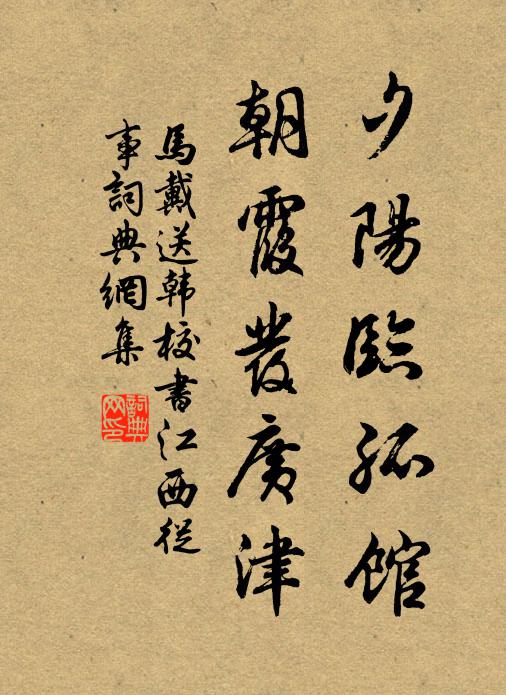 夕陽臨孤館
朝霞發廣津
馬戴送韩校書江西從
事詞典網集
詞典网印